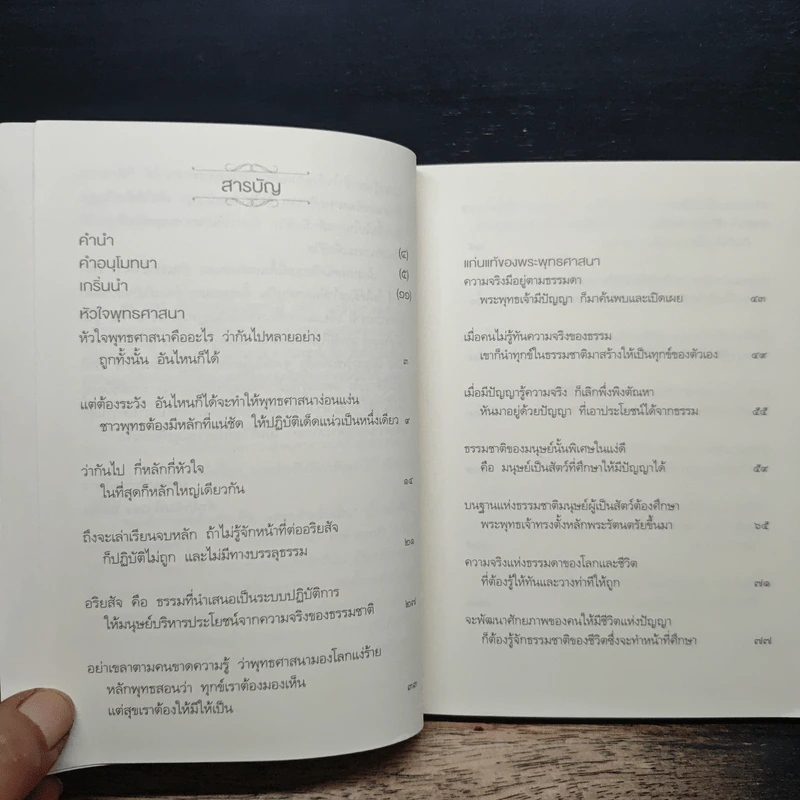 สารบัญ
คำนำ (๔)
คำอนุโมทนา (๕)
เกริ่นนำ (๑๐)
หัวใจพุทธศาสนา
หัวใจพุทธศาสนาคืออะไร ว่ากันไปหลายอย่าง
ถูกทั้งนั้น อันไหนก็ได้ ๓
แต่ต้องระวัง อันไหนก็ได้จะทำให้พุทธศาสนาง่อนแง่น
ชาวพุทธต้องมีหลักที่แน่ชัด ให้ปฏิบัติเด็ดแน่วเป็นหนึ่งเดียว ๙
ว่ากันไป กี่หลักกี่หัวใจ
ในที่สุดก็หลักใหญ่เดียวกัน ๑๔
ถึงจะเล่าเรียนจบหลัก ถ้าไม่รู้จักหน้าที่ต่ออริยสัจ
ก็ปฏิบัติไม่ถูก และไม่มีทางบรรลุธรรม ๒๑
อริยสัจ คือ ธรรมที่นำเสนอเป็นระบบปฏิบัติการ
ให้มนุษย์บริหารประโยชน์จากความจริงของธรรมชาติ ๒๗
อย่าเขลาตามคนขาดความรู้ ว่าพุทธศาสนามองโลกแง่ร้าย
หลักพุทธสอนว่า ทุกข์เราต้องมองเห็น
แต่สุขเราต้องให้มีให้เป็น ๓๓
แก่นแท้ของพระพุทธศาสนา
ความจริงมีอยู่ตามธรรมดา
พระพุทธเจ้ามีปัญญา ก็มาค้นพบและเปิดเผย ๔๓
เมื่อคนไม่รู้ทันความจริงของธรรม
เขาก็นำทุกข์ในธรรมชาติมาสร้างให้เป็นทุกข์ของตัวเอง ๔๙
เมื่อมีปัญญารู้ความจริง ก็เลิกพึ่งพิงตัณหา
หันมาอยู่ด้วยปัญญา ที่เอาประโยชน์ได้จากธรรม ๕๕
ธรรมชาติของมนุษย์นั้นพิเศษในแง่ดี
คือ มนุษย์เป็นสัตว์ที่ศึกษาให้มีปัญญาได้ ๕๙
บนฐานแห่งธรรมชาติมนุษย์ผู้เป็นสัตว์ต้องศึกษา
พระพุทธเจ้าทรงตั้งหลักพระรัตนตรัยขึ้นมา ๖๕
ความจริงแห่งธรรมดาของโลกและชีวิต
ที่ต้องรู้ให้ทันและวางท่าทีให้ถูก ๗๑
จะพัฒนาศักยภาพของคนให้มีชีวิตแห่งปัญญา
ก็ต้องรู้จักธรรมชาติของชีวิตซึ่งจะทำหน้าที่ศึกษา ๗๗